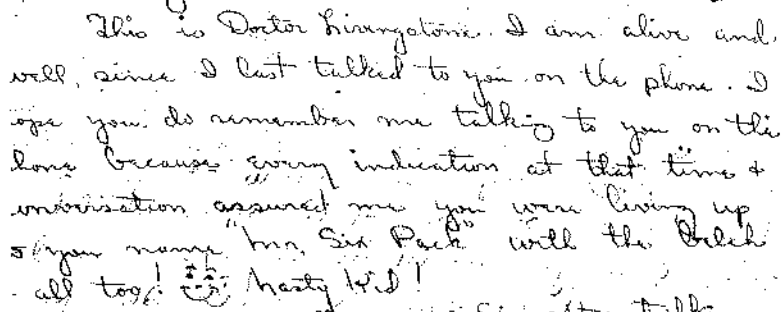 This is Doctor Livingstone. I am alive and
well, since I last talked to you on the phone. I
ope you do remember me talking to you on the
hone because every indication at that time &
onversation assured me you were living up
o your name "Mr. Six Pack" with the belch
all too! Nasty Kid!